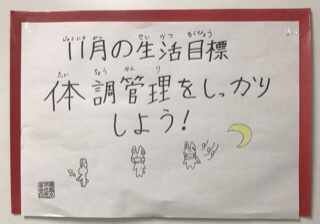 11月の生活目標
体調管理をしっかり
しよう！